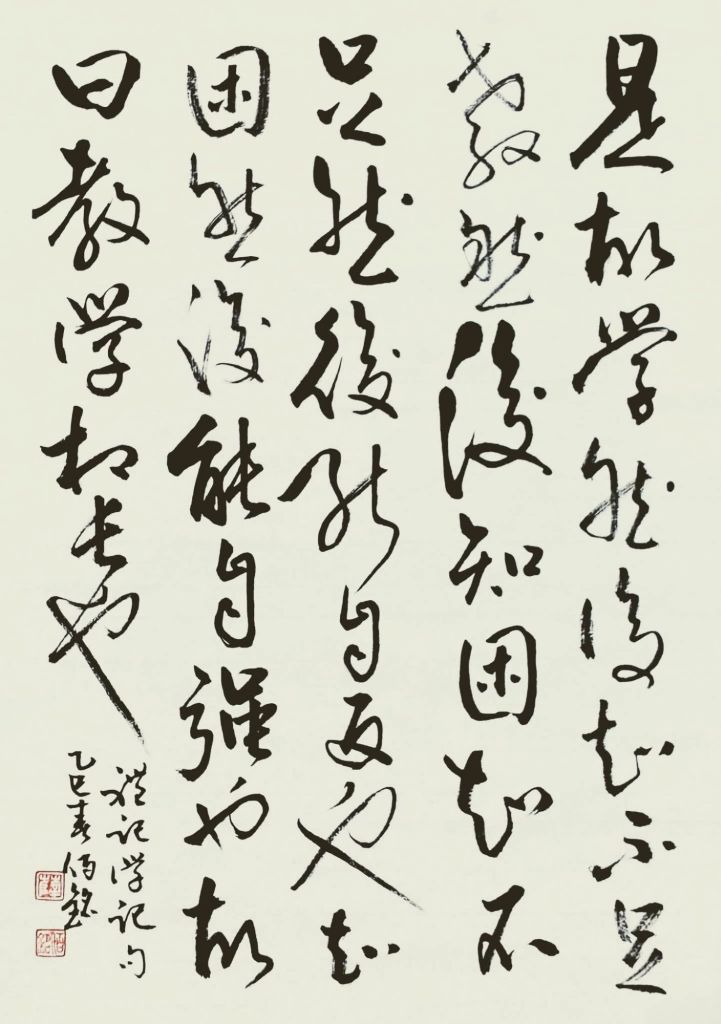 是故学然後知不足
教然後知困知不
足然後能自反也知
困然後能自强也故
曰教学相长也
礼记学记句
乙巳春